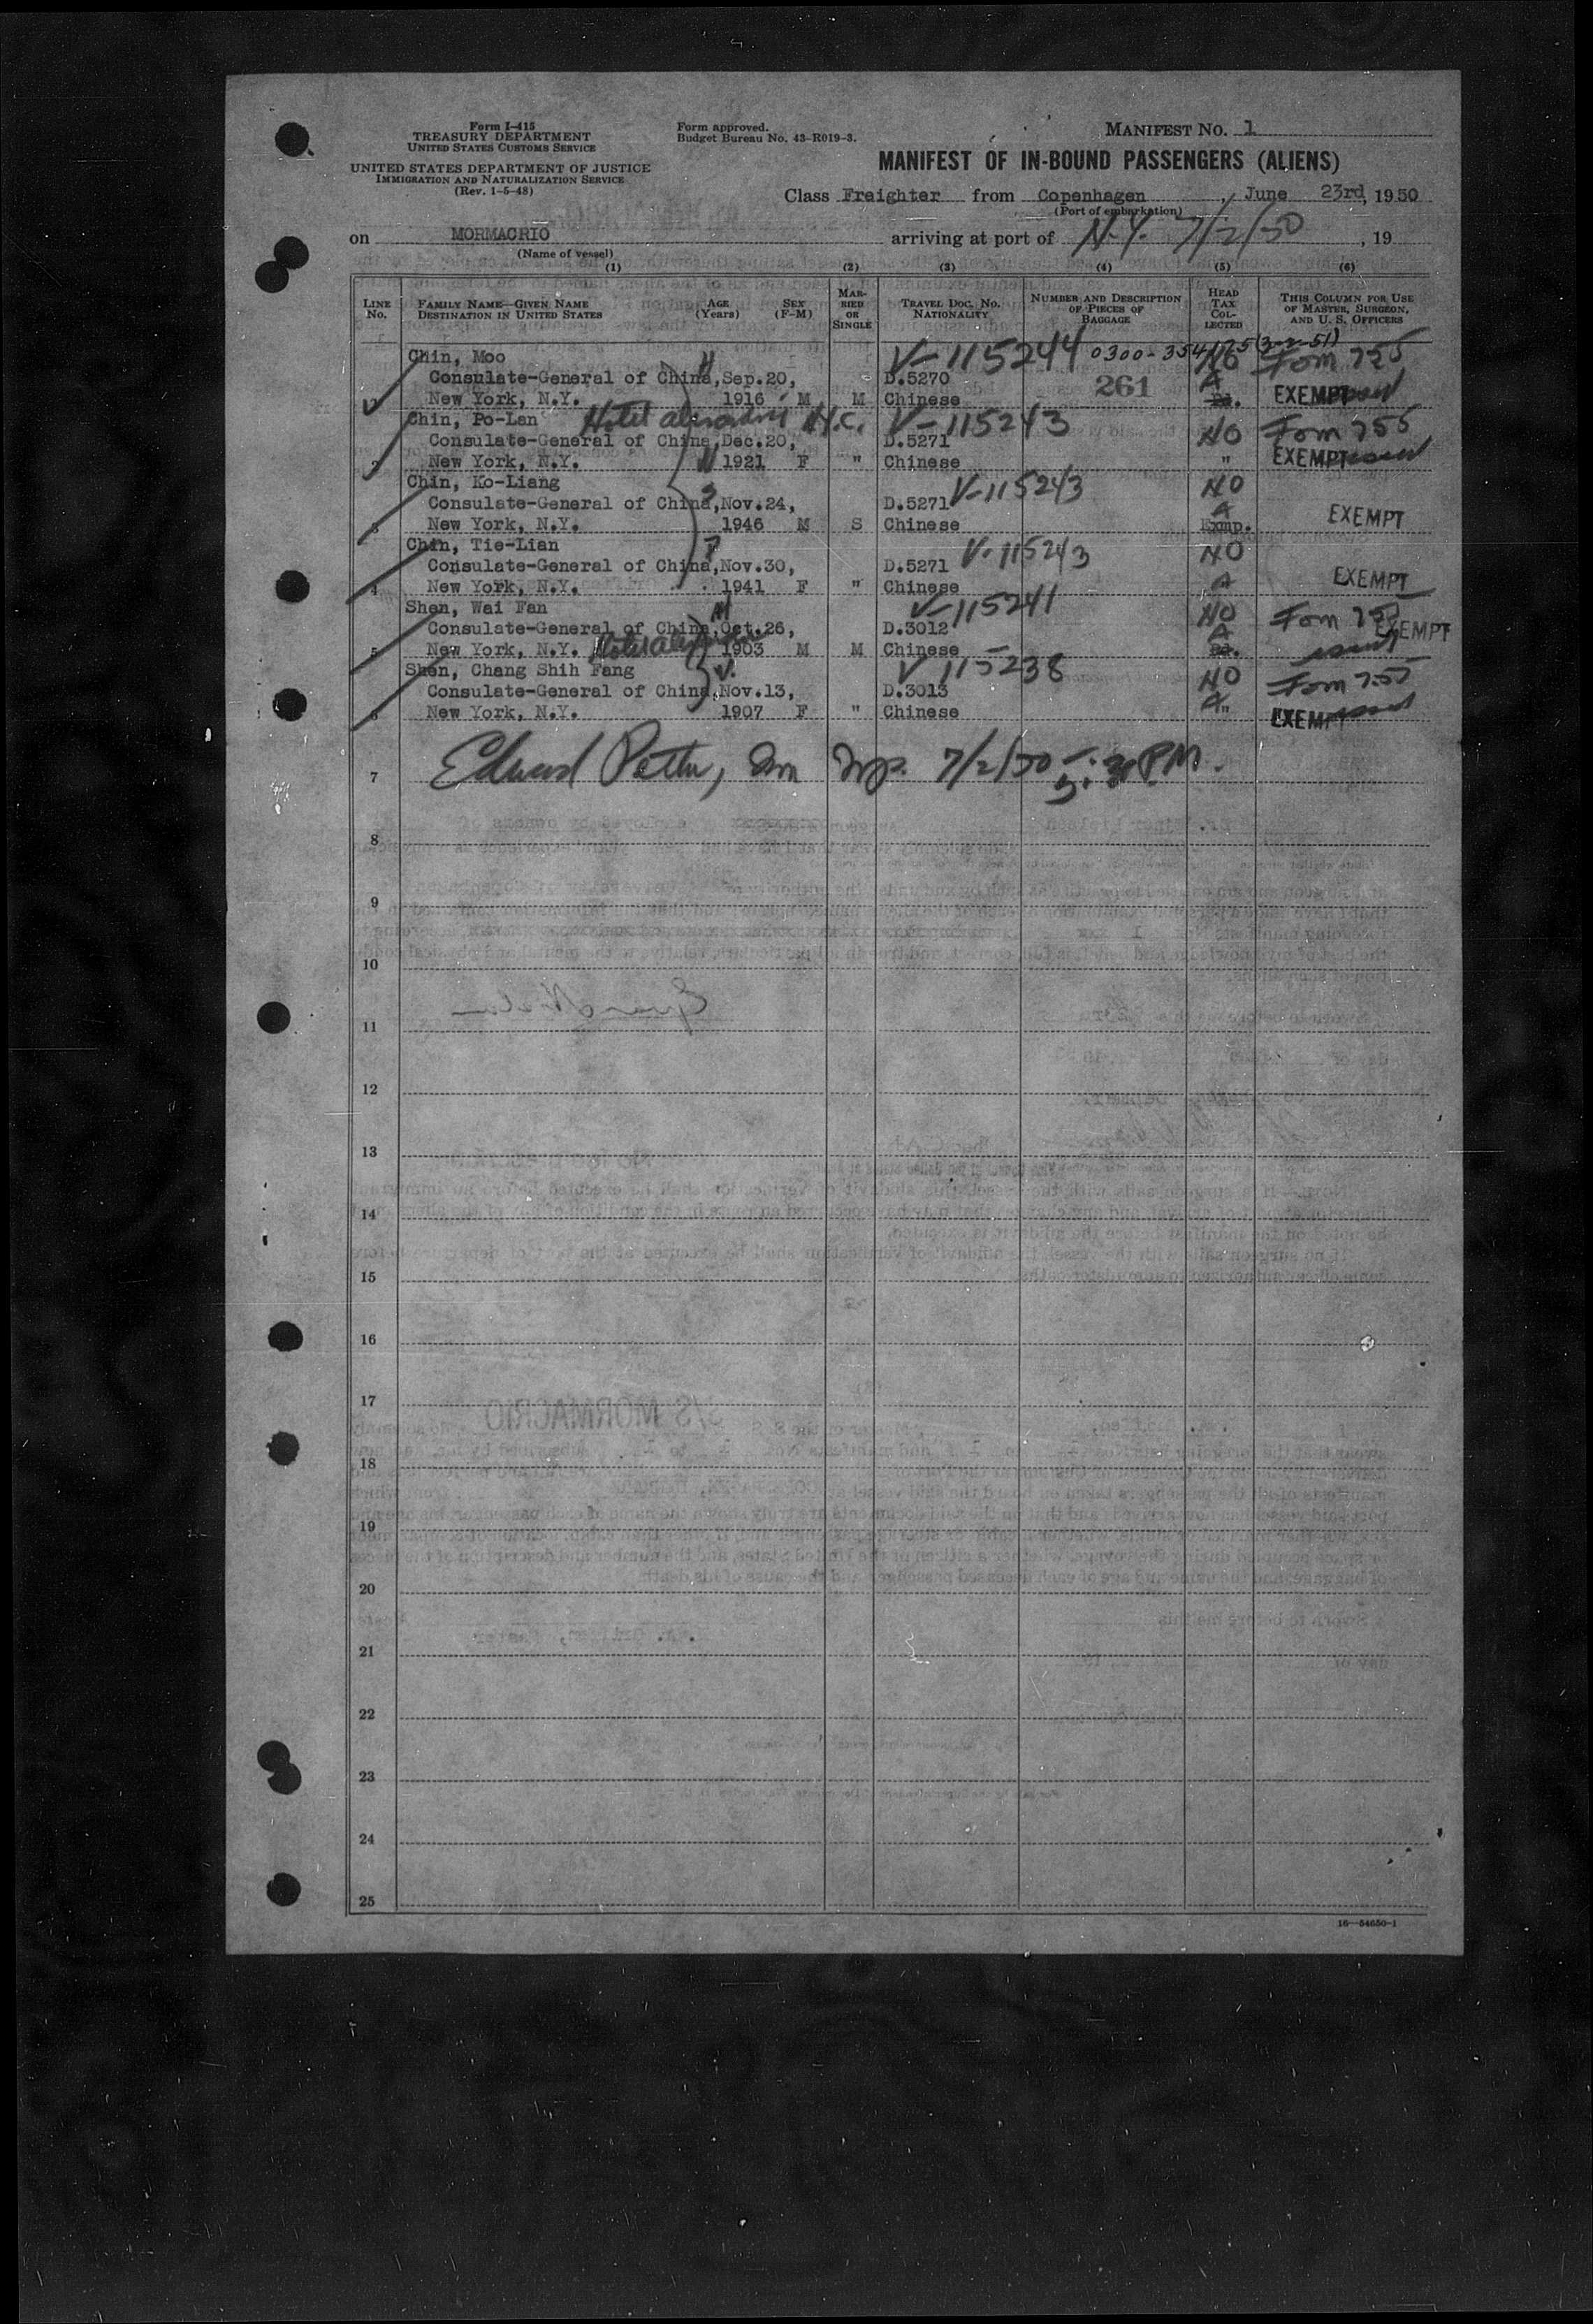 Form I-415
TREASURY DEPARTMENT
UNITED STATES CUSTOMS SERVICE
UNITED STATES DEPARTMENT OF JUSTICE
IMMIGRATION AND NATURALIZATION SERVICE
(Rev. 1-5-48)
Form approved.
Budget Bureau No. 43-R019-3.
MANIFEST No. 1
MANIFEST OF IN-BOUND PASSENGERS (ALIENS)
Class Freighter from Copenhagen, June 23rd, 1950
(Port of embarkation)
on MORMACRIO arriving at port of N.Y. 7/2/50, 19
(Name of vessel)
(1) (2) (3) (4) (5) (6)
LINE No. FAMILY NAME—GIVEN NAME DESTINATION IN UNITED STATES AGE (Years) SEX (F-M) MARRIED OR SINGLE TRAVEL DOC. NO. NATIONALITY NUMBER AND DESCRIPTION OF PIECES OF BAGGAGE HEAD TAX COLLECTED THIS COLUMN FOR USE OF MASTER, SURGEON, AND U. S. OFFICERS
Chin, Moo H V-115244 0300-354175 (3-2-51) NO Form 255
Consulate-General of China, Sep.20, D.5270 261 A
1 New York, N.Y. 1916 M M Chinese Pd. EXEMPT issued
Chin, Po-Lan Hotel V-115243 NO Form 255
Consulate-General of China, Dec.20, D.5271
2 New York, N.Y. W 1921 F " Chinese " EXEMPT issued
Chin, Ko-Liang V-115243 NO
Consulate-General of China, Nov.24, D.5271 A EXEMPT
3 New York, N.Y. 1946 M S Chinese Exmp.
Chin, Tie-Lian V-115243 NO
Consulate-General of China, Nov.30, D.5271 EXEMPT
4 New York, N.Y. 1941 F " Chinese A
Shen, Wai Fan H V-115241 NO Form 255
Consulate-General of China, Oct.26, D.3012 A EXEMPT
5 New York, N.Y. Hotel 1903 M M Chinese Pd. issued
Shen, Chang Shih Fang V 115238 NO Form 255
Consulate-General of China, Nov.13, D.3013 A
6 New York, N.Y. 1907 F " Chinese " EXEMPT issued
7 Edward 7/2/50 PM.
8
9
10
11
12
13
14
15
16
17
18
19
20
21
22
23
24
25
16—54650-1